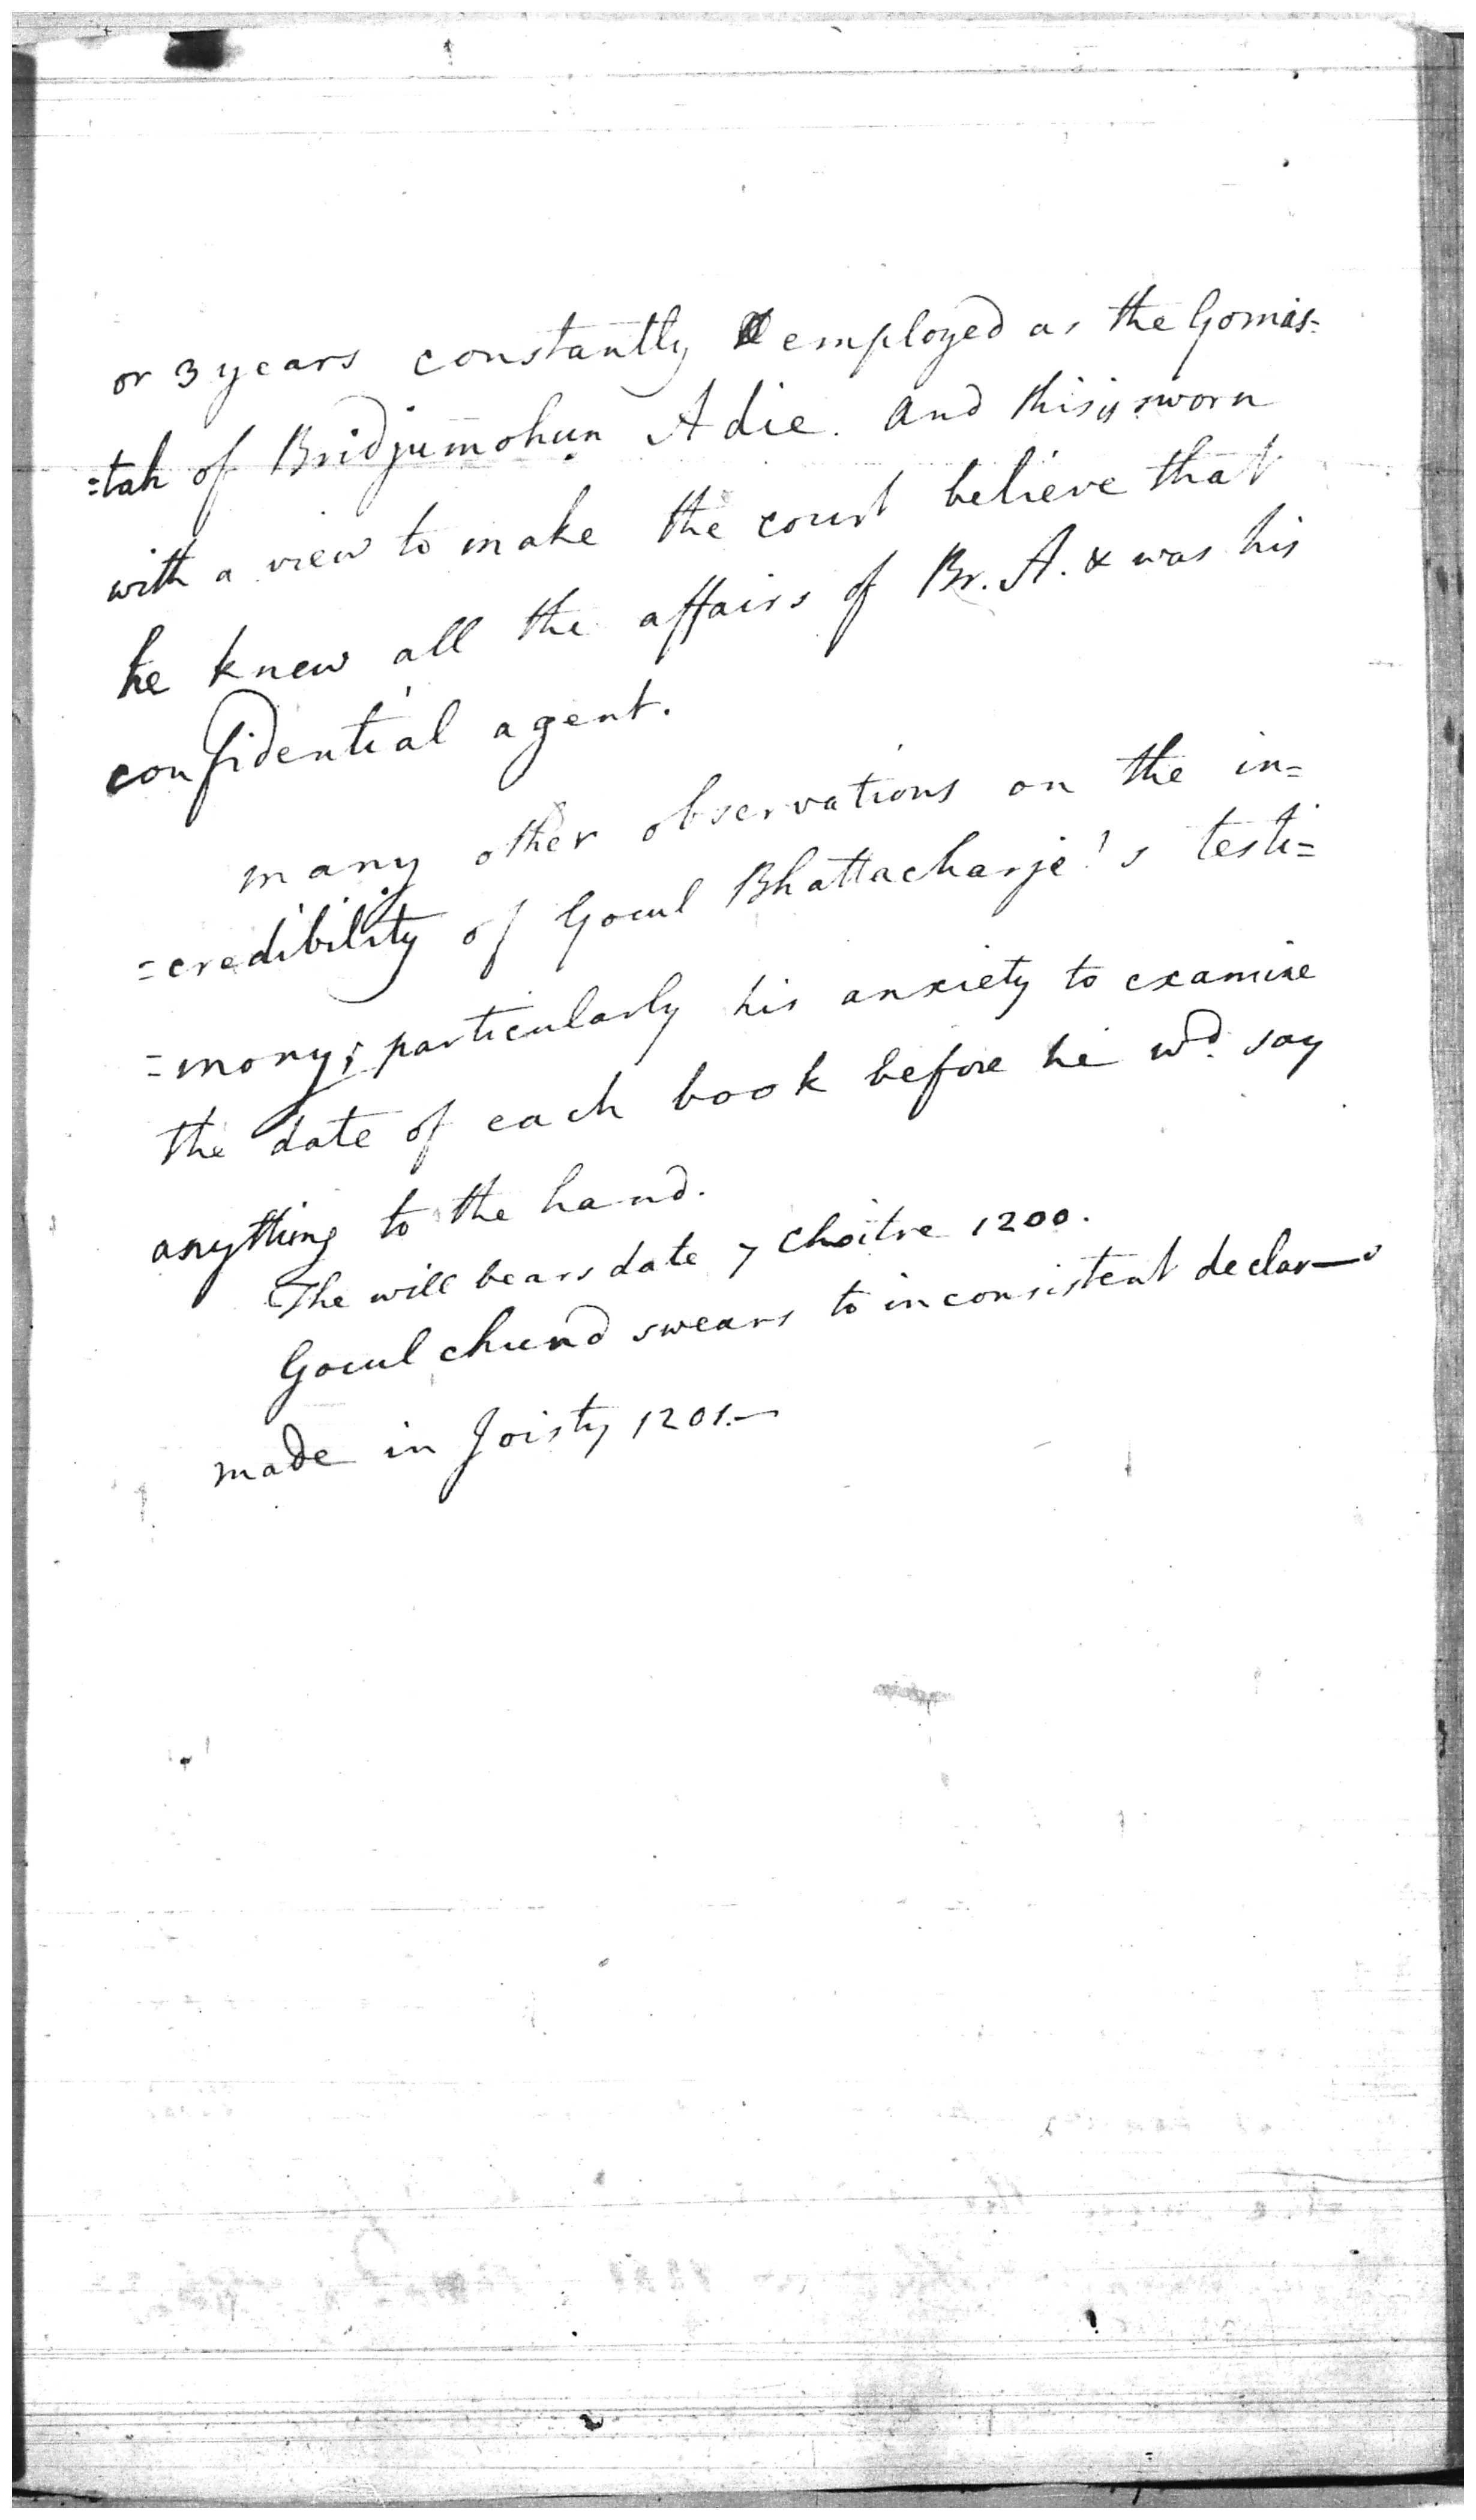 or 3 years constantly employed as the Gomas=
=tah of Bridjumohun Adie. and this is sworn
with a view to make the court believe that
he knew all the affairs of Br. A. & was his
confidential agent.
many other observations on the in=
=credibility of Gocul Bhattacharje's testi=
=mony; particularly his anxiety to examine
the date of each book before he wd. say
anything to the hand.
The will bears date 7 Choitre 1200.
Gocul chund swears to inconsistent declar—s
made in Joisty 1201.—